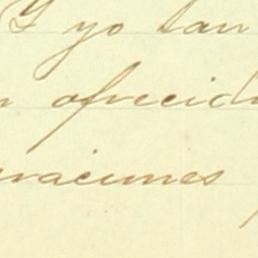 Y yo tan
ofrecid
raciones